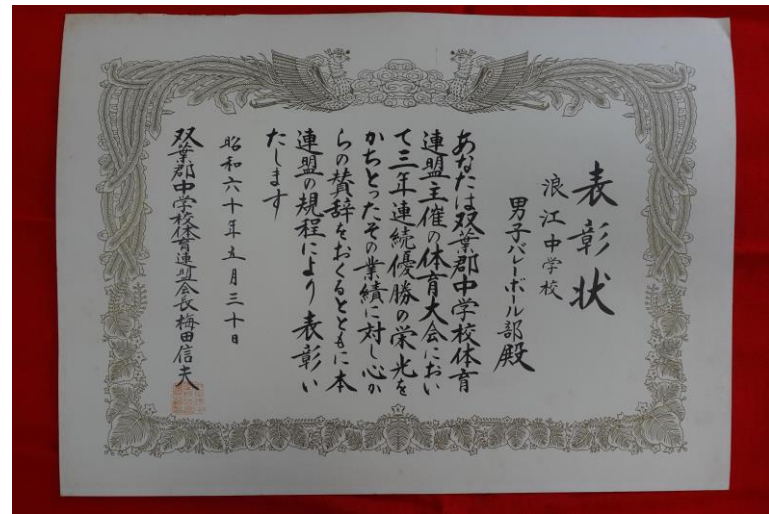 表彰状
浪江中学校
男子バレーボール部殿
あなたは双葉郡中学校体育
連盟主催の体育大会におい
て三年連続優勝の栄光を
かちとったその業績に対し心か
らの賛辞をおくるとともに本
連盟の規程により表彰い
たします
昭和六十年五月三十日
双葉郡中学校体育連盟会長梅田信夫